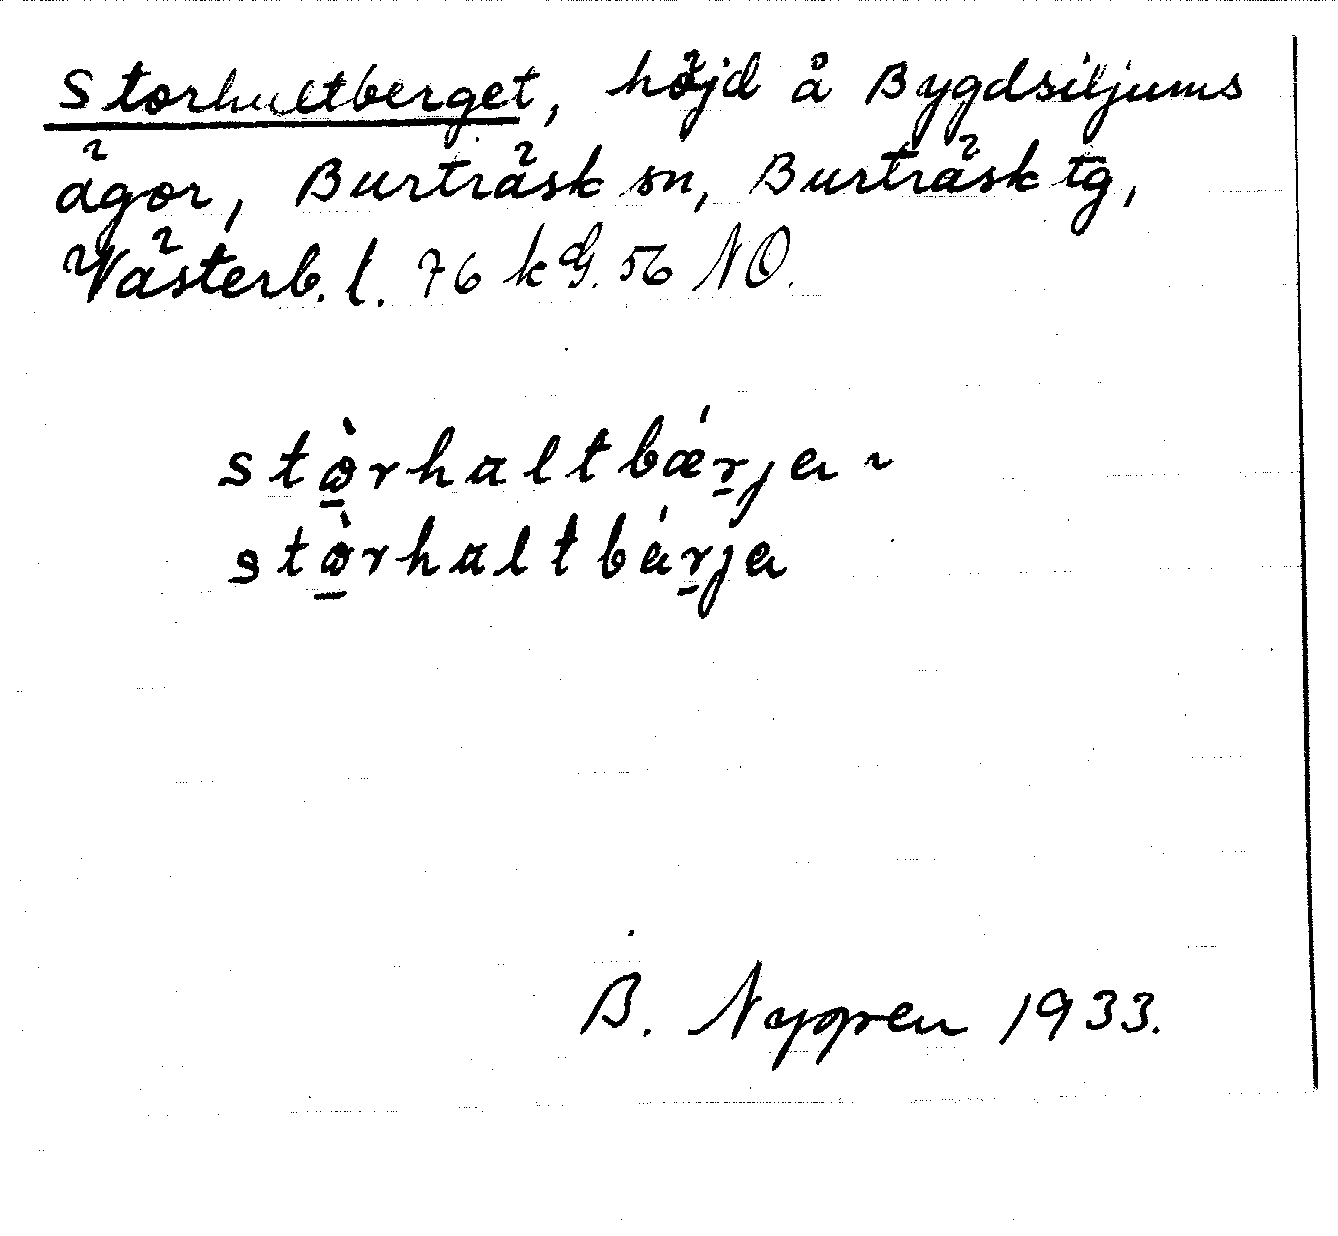 Storhultberget, höjd å Bygdsiljums
ägor, Burträsk sn, Burträsk tg,
Västerb. l. 76 k G. 56 NO.
stò̱rhaltbǽr̠ja ~
stò̱rhaltbár̠ja
B. Nygren 1933.